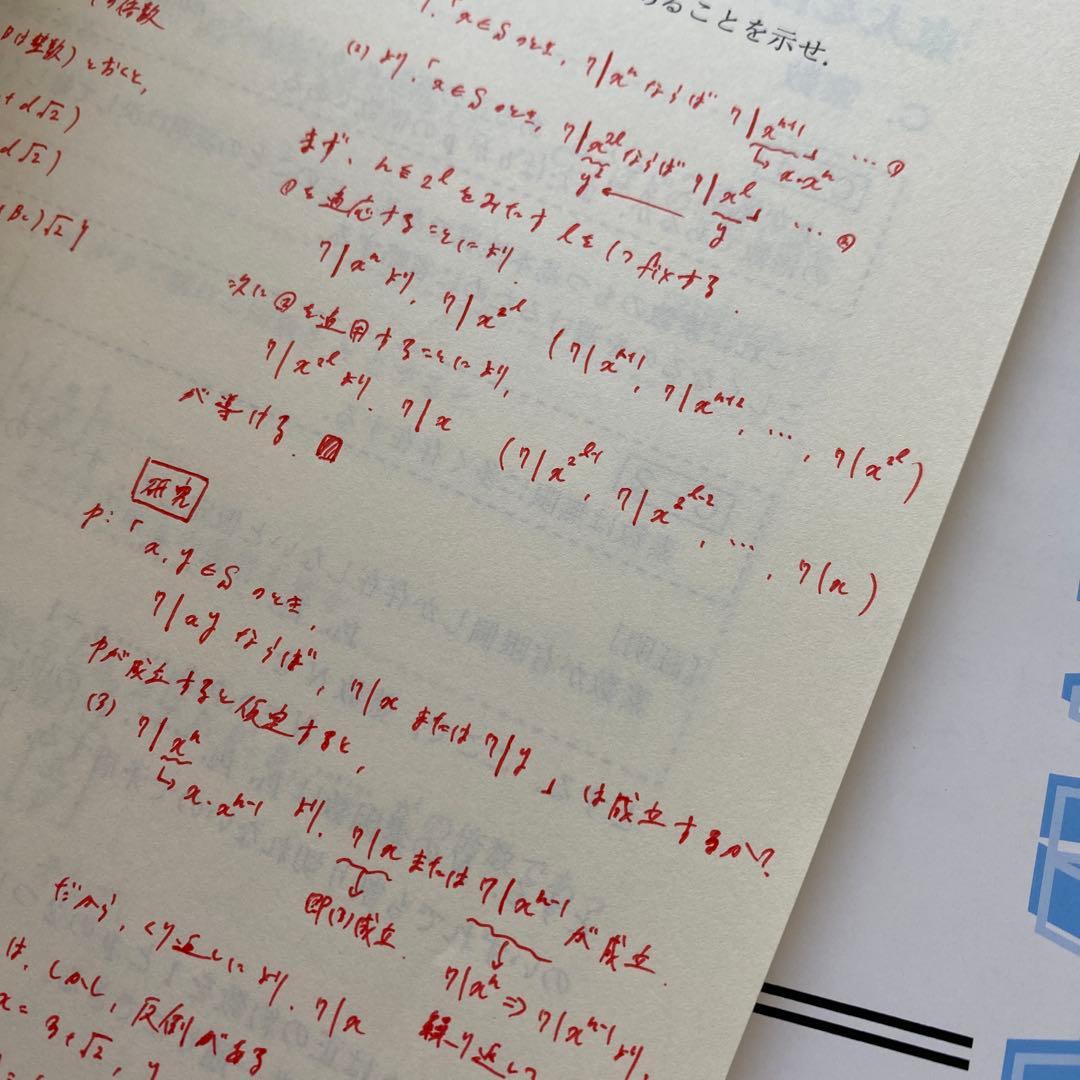 あることを示せ.
の倍数
Pは整数) とおくと,
+ d√2)
d√2)
Bc)√2 }
1. 「x∈S のとき, 7|xⁿ ならば 7|xⁿ⁺¹」 … ①
↳ x・xⁿ
(2) より. 「x∈S のとき, 7|x²ˡ ならば 7|xˡ」 … ②
y² ← y
まず、n≦2ˡ をみたす lを1つ fixする.
①を適応することにより
7|xⁿ より, 7|x^{2^l} (7|xⁿ⁺¹, 7|xⁿ⁺², …, 7|x^{2^l})
次に②を適用することにより,
7|x^{2^l} より. 7|x (7|x^{2^{l-1}}, 7|x^{2^{l-2}}, …, 7|x)
が導ける.
研究
P: 「x, y∈S のとき,
7|xy ならば, 7|x または 7|y」 は成立するか?
Pが成立すると仮定すると,
(3) 7|xⁿ
↳ x・xⁿ⁻¹ より. 7|x または 7|xⁿ⁻¹ が成立.
↓ 即(3)成立
↓ 7|xⁿ ⇒ 7|xⁿ⁻¹ より,
繰り返して
だから, くり返しにより. 7|x
は. しかし, 反例がある
x= 3+√2, y